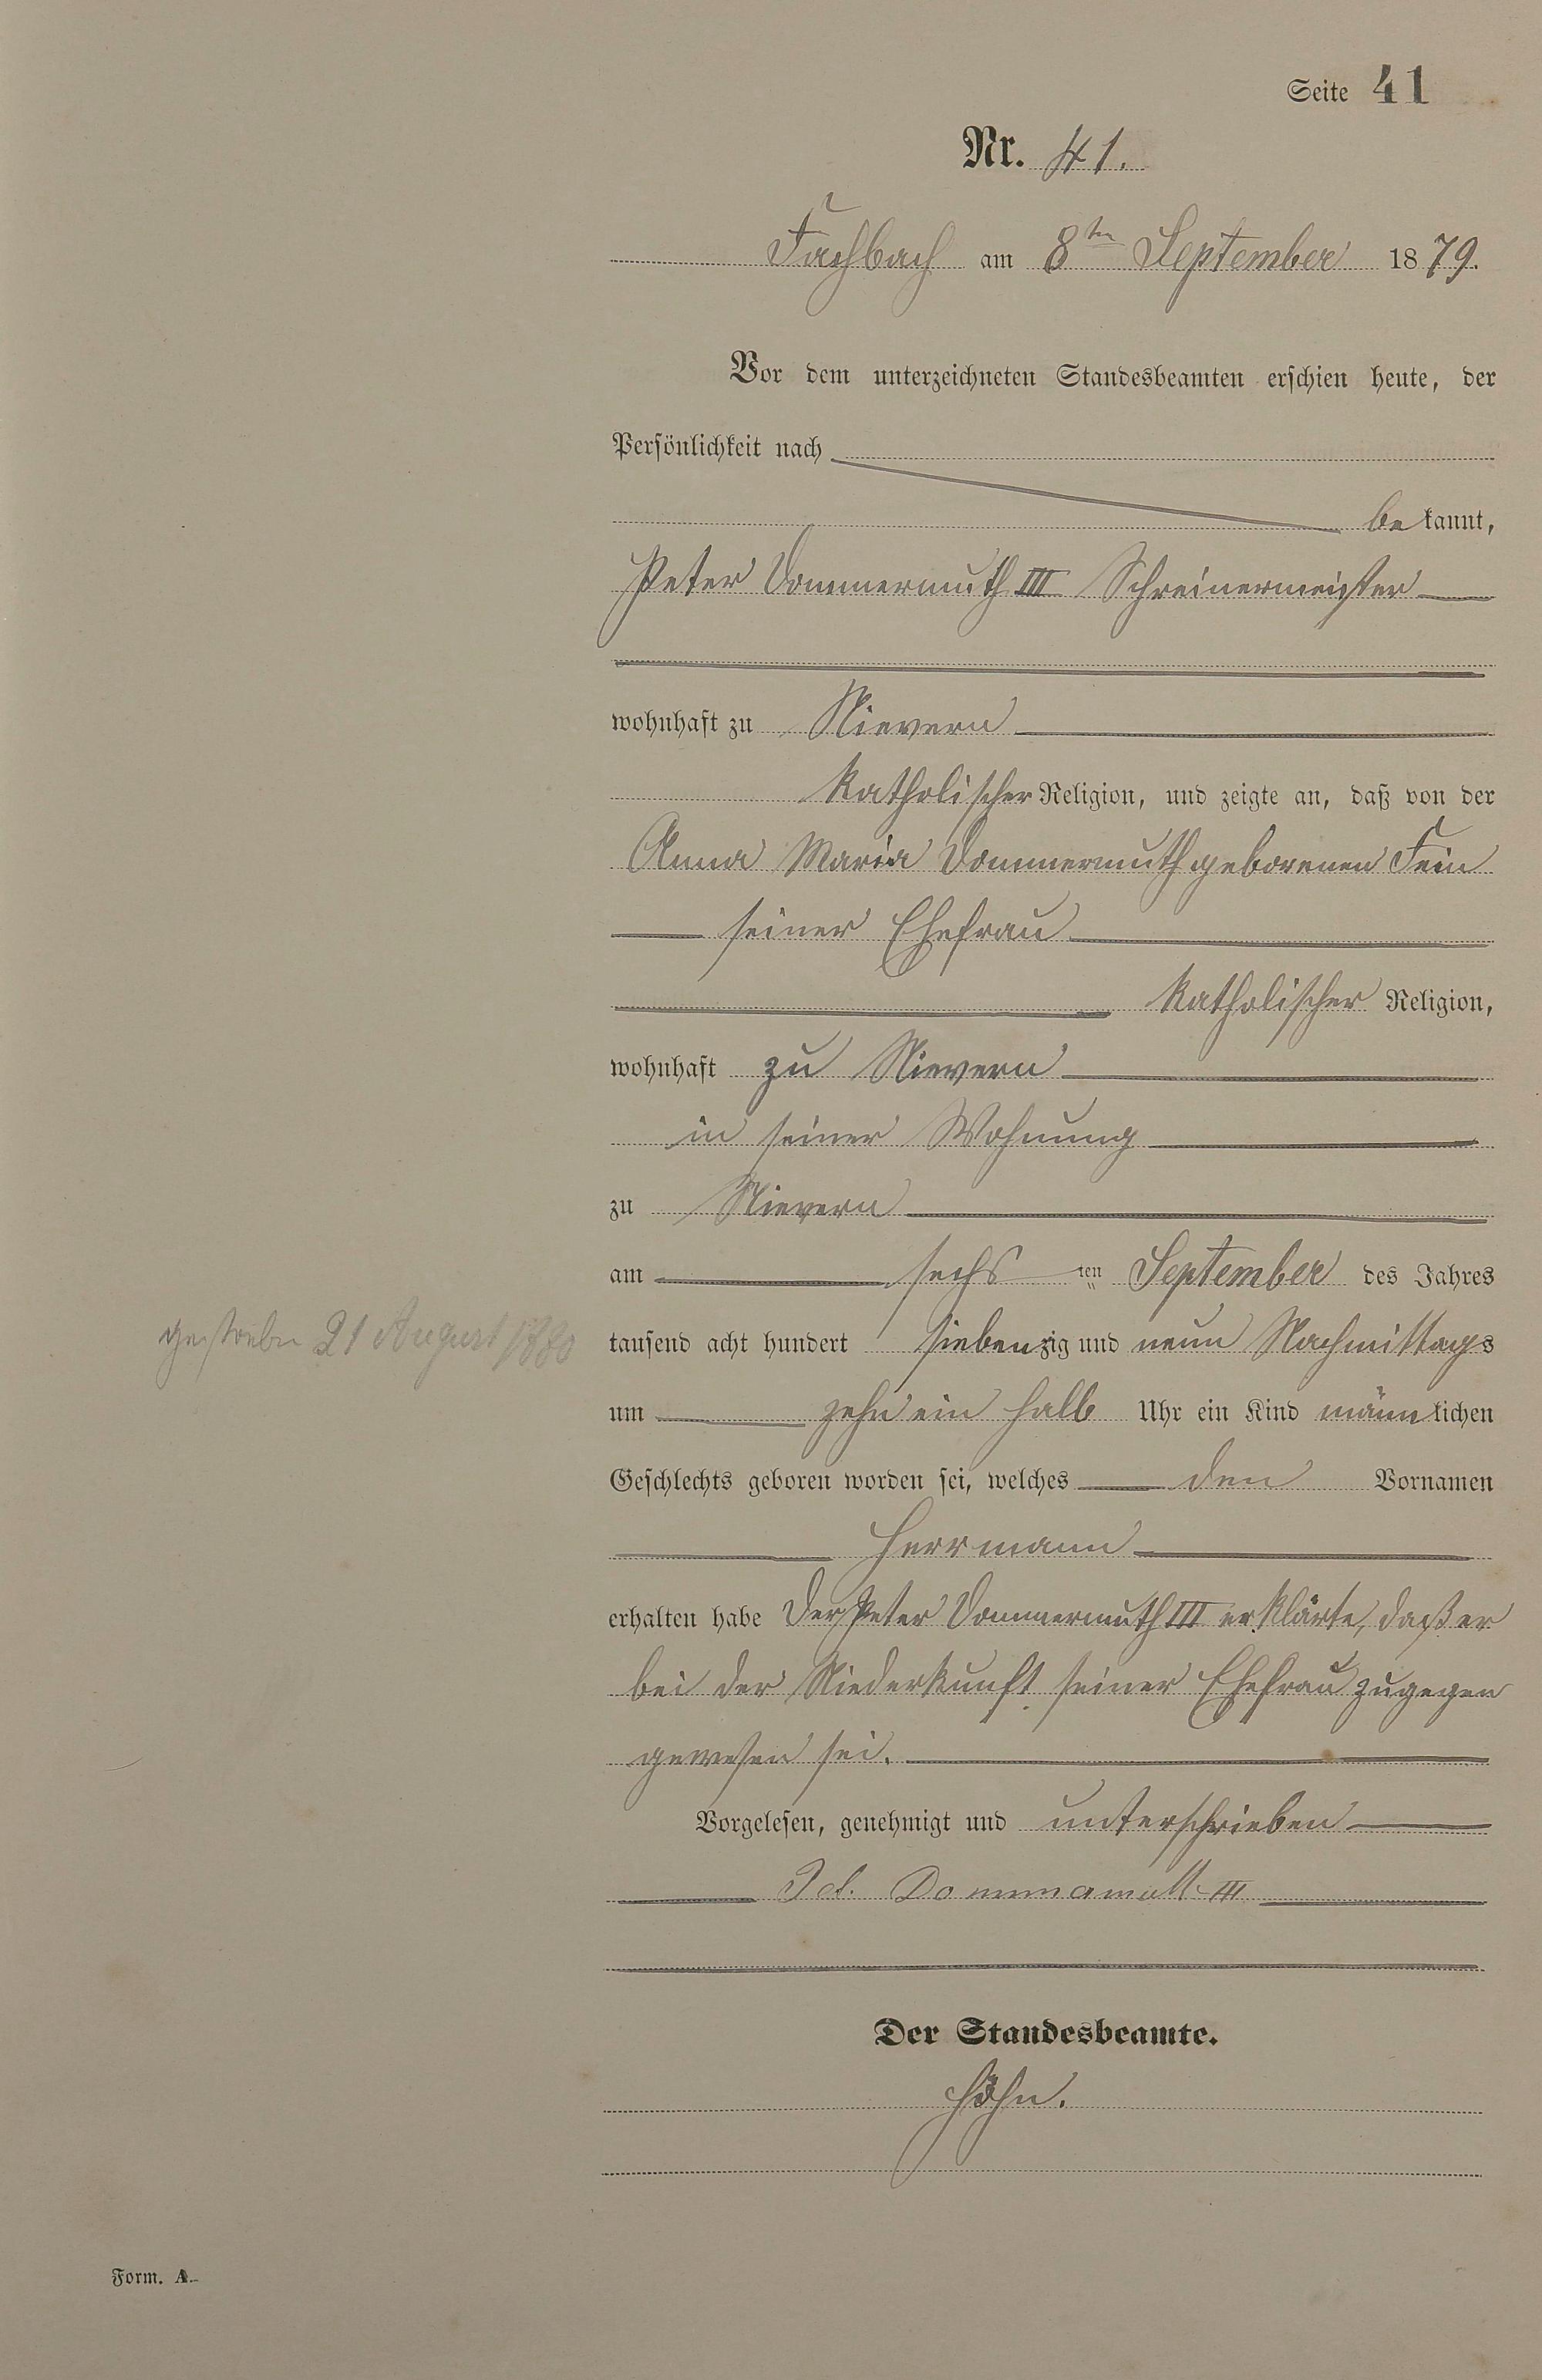 Seite 41
Nr. 41.
Fachbach am 8ten September 1879.
Vor dem unterzeichneten Standesbeamten erschien heute, der
Persönlichkeit nach
be kannt,
Peter Dommermuth III Schreinermeister
wohnhaft zu Nievern
katholischer Religion, und zeigte an, daß von der
Anna Maria Dommermuth geborenen Fein
seiner Ehefrau
katholischer Religion,
wohnhaft zu Nievern
in seiner Wohnung
zu Nievern
am sechs ten September des Jahres
gestorben 21 August 1880
tausend acht hundert siebenzig und neun Nachmittags
um zehn ein halb Uhr ein Kind männlichen
Geschlechts geboren worden sei, welches den Vornamen
Herrmann
erhalten habe Der Peter Dommermuth III erklärte, daß er
bei der Niederkunft seiner Ehefrau zugegen
gewesen sei.
Vorgelesen, genehmigt und unterschrieben
Pet. Dommermuth III
Der Standesbeamte.
Höhn.
Form. A.